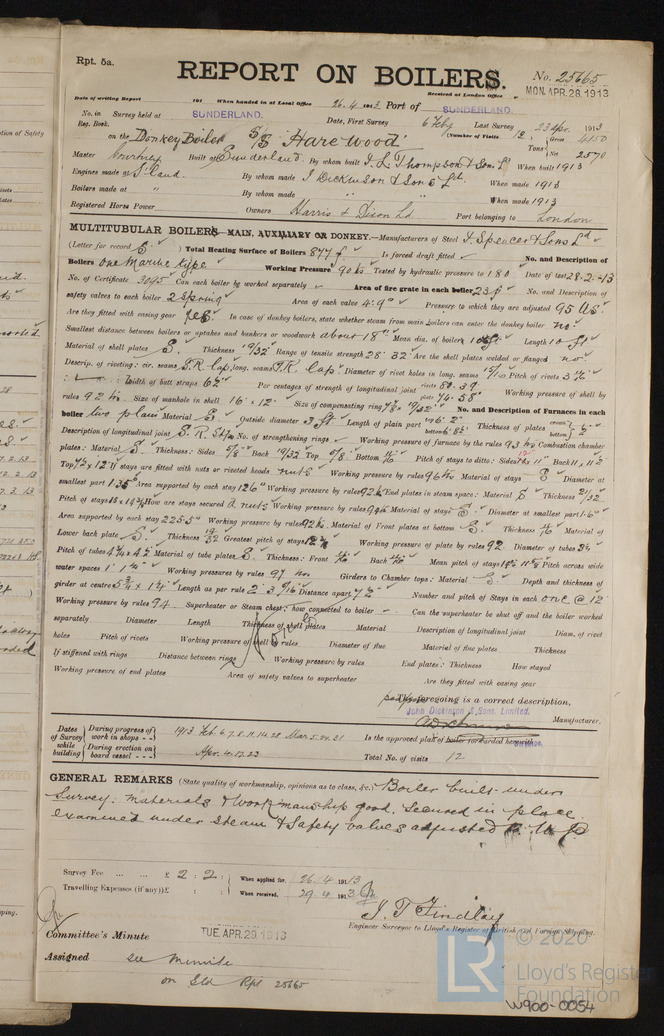 Rpt. 5a.
REPORT ON BOILERS.
No. 25665
Received at London Office MON. APR. 28. 1913
Date of writing Report 191 When handed in at Local Office 26.4.1913 Port of SUNDERLAND.
No. in Reg. Book. Survey held at SUNDERLAND. Date, First Survey 6 Feby Last Survey 23 Apr. 1913
(Number of Visits 12.)
on the Donkey Boiler S/S "Harewood" Tons Gross 4150 Net 2570
Master Courtney Built at Sunderland. By whom built J. L. Thompson & Sons Ld When built 1913
Engines made at S'land. By whom made J. Dickinson & Sons Ld. When made 1913
Boilers made at " By whom made " When made 1913
Registered Horse Power Owners Harris & Dixon Ld Port belonging to London
MULTITUBULAR BOILERS MAIN, AUXILIARY OR DONKEY.—Manufacturers of Steel J. Spencer & Sons Ld
(Letter for record S ) Total Heating Surface of Boilers 877 f Is forced draft fitted No. and Description of
Boilers One Marine type Working Pressure 90 lbs Tested by hydraulic pressure to 180 Date of test 28-2-13
No. of Certificate 3095 Can each boiler be worked separately Area of fire grate in each boiler 23 f No. and Description of
safety valves to each boiler 2 Spring Area of each valve 4.9" Pressure to which they are adjusted 95 lbs
Are they fitted with easing gear yes. In case of donkey boilers, state whether steam from main boilers can enter the donkey boiler no
Smallest distance between boilers or uptakes and bunkers or woodwork about 18" Mean dia. of boilers Length 10 ft
Material of shell plates S. Thickness 19/32 Range of tensile strength 28 32 Are the shell plates welded or flanged no
Descrip. of riveting: cir. seams long. seams T.R. Lap Diameter of rivet holes in long. seams 15/16 Pitch of rivets
Width of butt straps 6 1/2" Per centages of strength of longitudinal joint rivets 80.39. plate 74.58" Working pressure of shell by
rules 92 lbs Size of manhole in shell 16" x 12" Size of compensating ring No. and Description of Furnaces in each
boiler two plain Material S Outside diameter 3 ft Length of plain part top bottom Thickness of plates crown bottom 1/2"
Description of longitudinal joint No. of strengthening rings Working pressure of furnace by the rules 93 lbs Combustion chamber
plates: Material S Thickness: Sides 5/8 Back 19/32 Top 5/8 Bottom 11/16 Pitch of stays to ditto: Sides Back 11 x 11 1/2
Top If stays are fitted with nuts or riveted heads nuts Working pressure by rules 96 lbs Material of stays S Diameter at
smallest part 1.35" Area supported by each stay 126" Working pressure by rules 92 lbs End plates in steam space: Material S Thickness 21/32
Pitch of stays How are stays secured d nuts Working pressure by rules Material of stays S Diameter at smallest part
Area supported by each stay 225.5" Working pressure by rules 92 lbs. Material of Front plates at bottom S Thickness Material of
Lower back plate S. Thickness 19/32 Greatest pitch of stays Working pressure of plate by rules 92 Diameter of tubes
Pitch of tubes Material of tube plates S. Thickness: Front Back Mean pitch of stays Pitch across wide
water spaces Working pressures by rules 97 lbs Girders to Chamber tops: Material S Depth and thickness of
girder at centre Length as per rule 2' 3 9/16" Distance apart 7 1/2" Number and pitch of Stays in each one @ 12"
Working pressure by rules 94 Superheater or Steam chest; how connected to boiler Can the superheater be shut off and the boiler worked
separately Diameter Length Thickness of shell plates Material Description of longitudinal joint Diam. of rivet
holes Pitch of rivets Working pressure of shell by rules Diameter of flue Material of flue plates Thickness
If stiffened with rings Distance between rings Working pressure by rules End plates: Thickness How stayed
Working pressure of end plates Area of safety valves to superheater Are they fitted with easing gear
The foregoing is a correct description,
John Dickinson & Sons, Limited.
Manufacturer.
Dates of Survey while building
During progress of work in shops - - 1913 Feb. 6. 7. 8. 11. 14. 28 Mar 5. 24. 31
During erection on board vessel - - - Apr. 4. 17. 23
Is the approved plan of boiler forwarded herewith
Total No. of visits 12
GENERAL REMARKS (State quality of workmanship, opinions as to class, &c.) Boiler built under
Survey. Materials & workmanship good. Secured in place
examined under steam & Safety valves adjusted
Survey Fee ... ... £ 2 : 2 : When applied for. 26.4.1913
Travelling Expenses (if any) £ : : When received. 29.4.1913
J. T. Findlay
Engineer Surveyor to Lloyd's Register of British and Foreign Shipping.
Committee's Minute TUE. APR. 29. 1913
Assigned see minute
on Sld Rpt 25665
LR © 2020
Lloyd's Register
Foundation
W900-0054